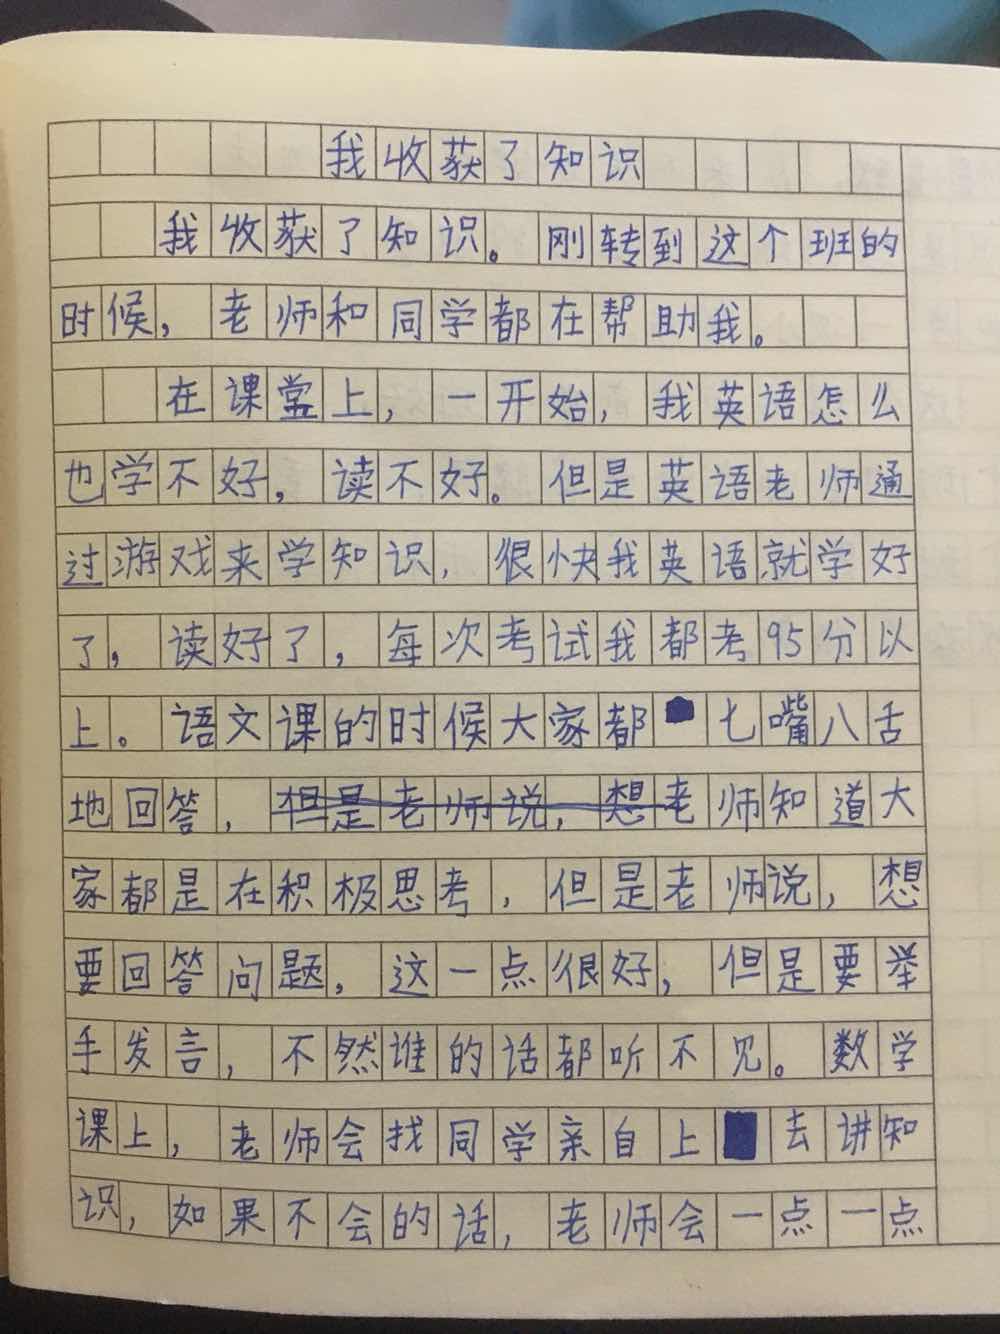 我收获了知识
我收获了知识。刚转到这个班的
时候，老师和同学都在帮助我。
在课堂上，一开始，我英语怎么
也学不好，读不好。但是英语老师通
过游戏来学知识，很快我英语就学好
了，读好了，每次考试我都考95分以
上。语文课的时候大家都七嘴八舌
地回答，但是老师说，想老师知道大
家都是在积极思考，但是老师说，想
要回答问题，这一点很好，但是要举
手发言，不然谁的话都听不见。数学
课上，老师会找同学亲自上去讲知
识，如果不会的话，老师会一点一点